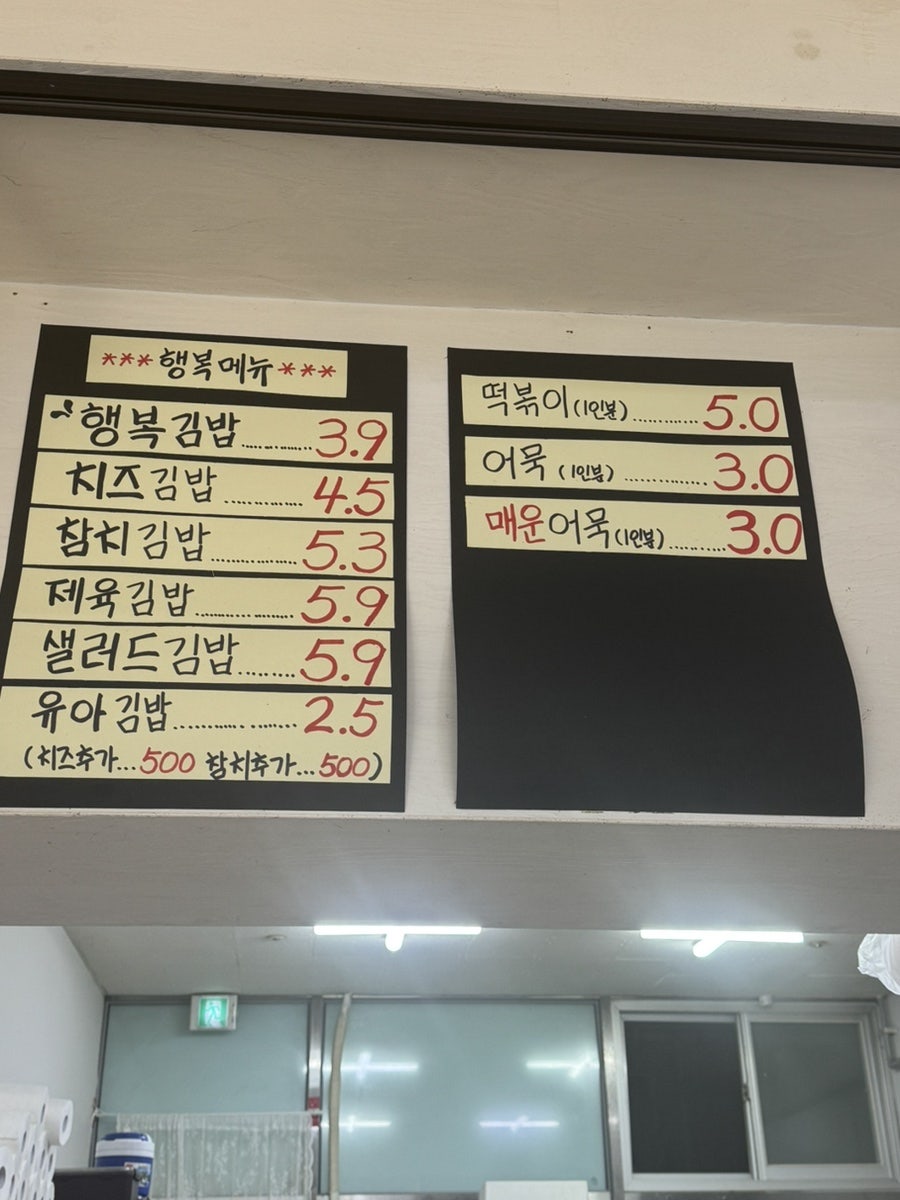 ***행복메뉴***
행복김밥..............3.9
치즈김밥............4.5
참치김밥.............5.3
제육김밥..............5.9
샐러드김밥........5.9
유아김밥................2.5
(치즈추가...500 참치추가...500)
떡볶이(1인분)............5.0
어묵 (1인분)..............3.0
매운어묵(1인분).........3.0